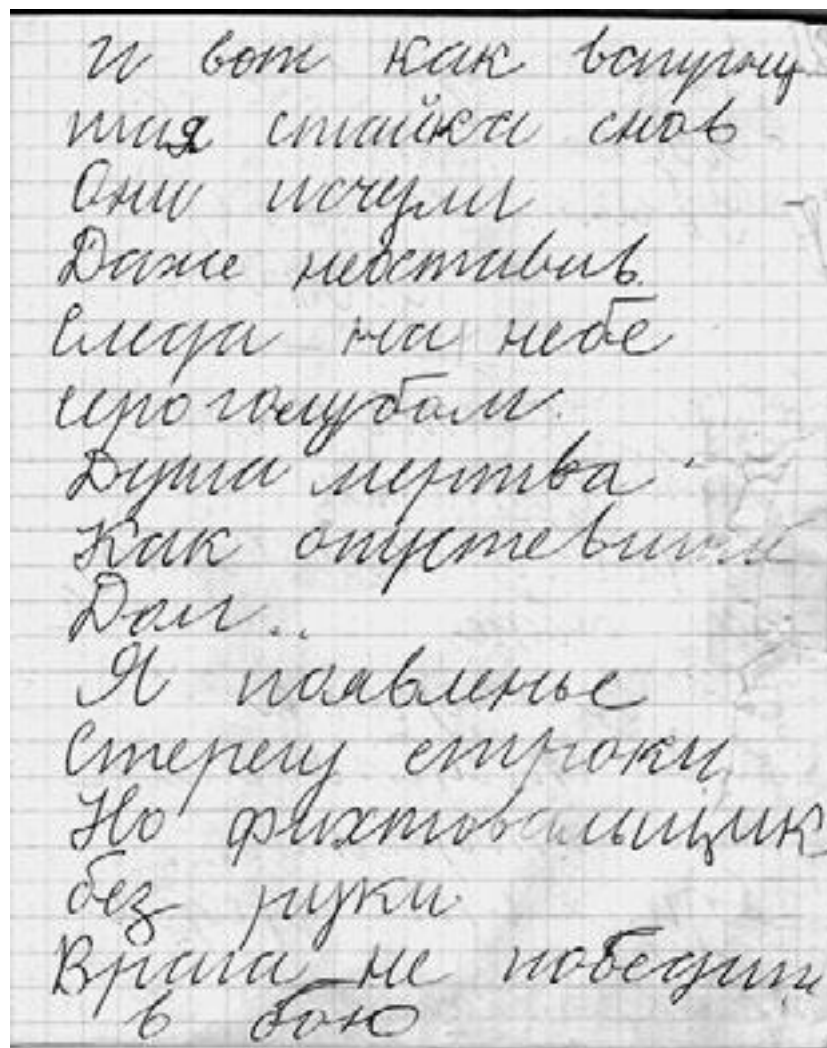 И вот как вспугну
тая стайка снов
Они исчезли
Даже неоставив
Следа на небе
серо голубом.
Душа мертва
Как опустевший
Дом...
Я появленье
Стерегу строки
Но фихтовальщик
без руки
Врага не победит
в бою